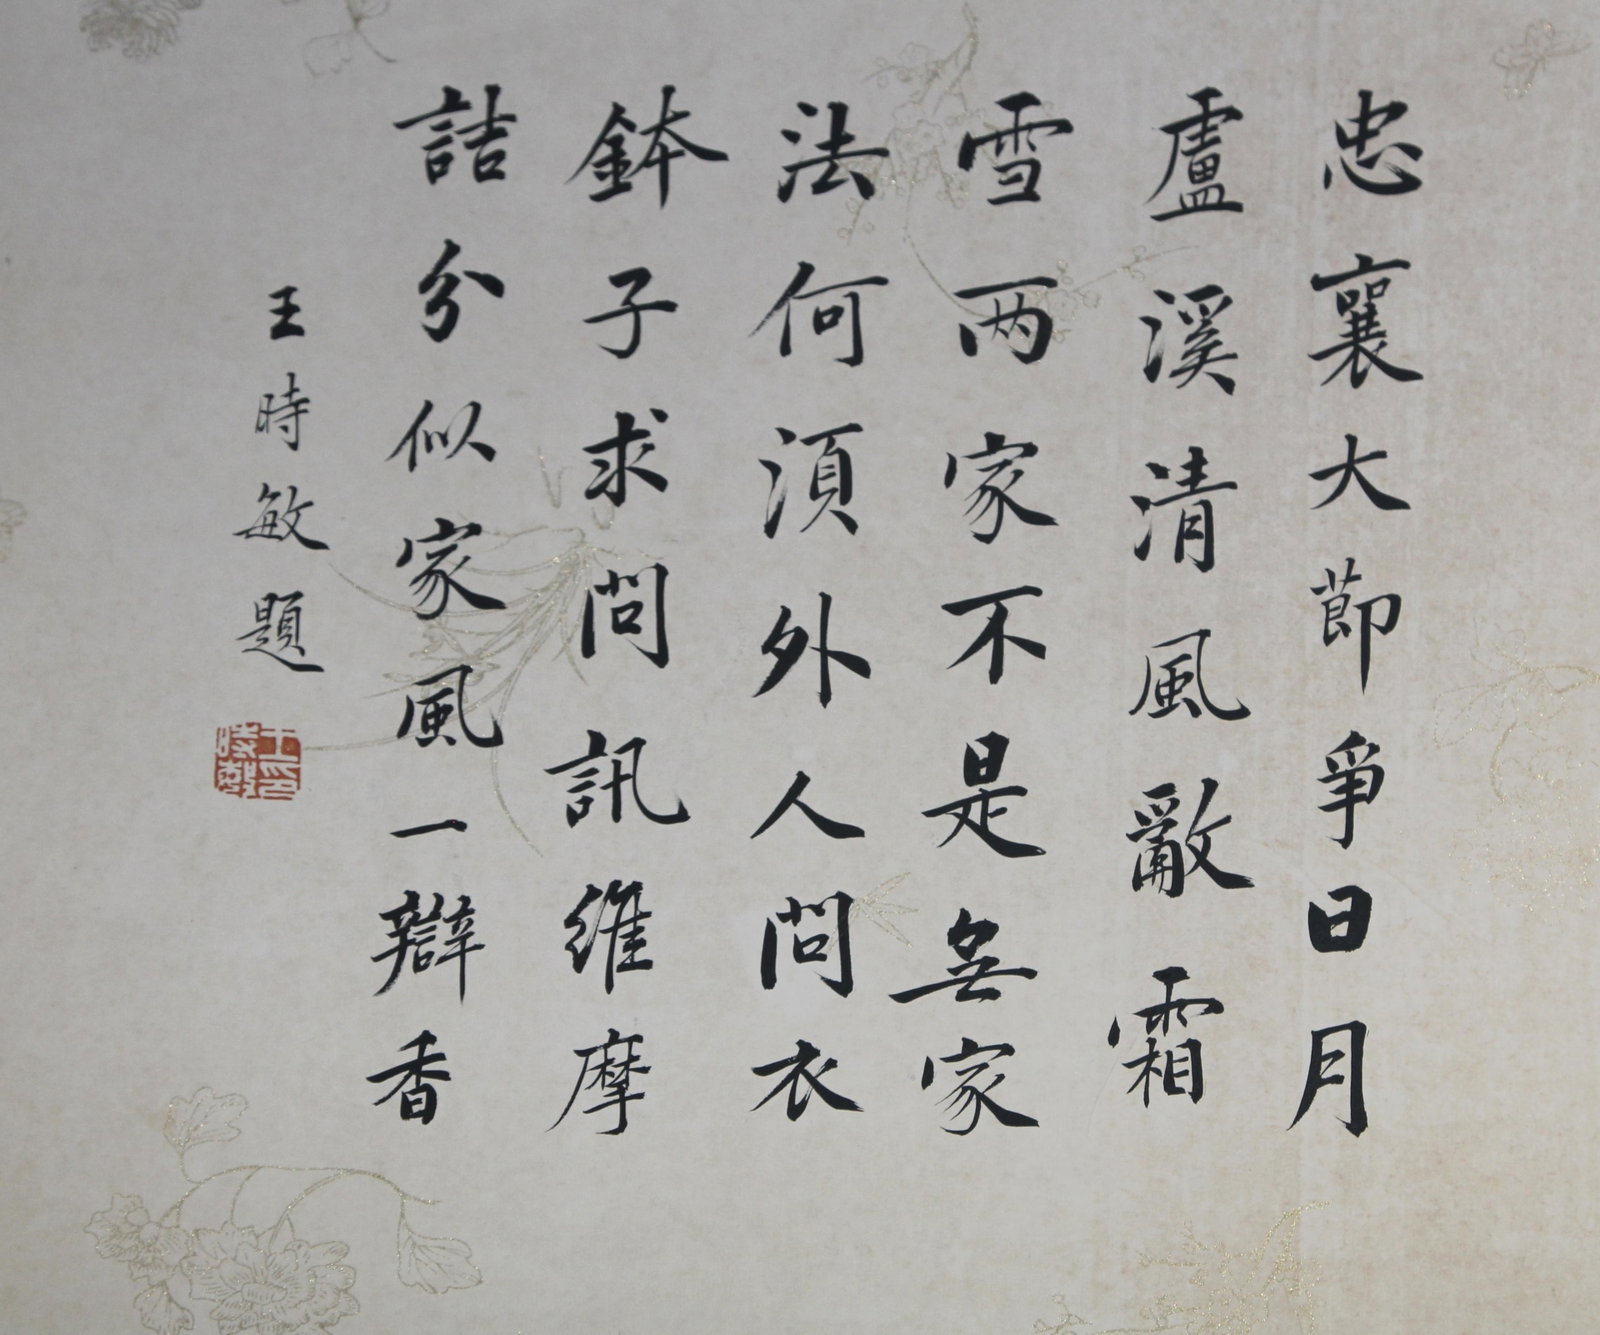 忠襄大節爭日月
盧溪清風敵霜
雪两家不是無家
法何湏外人問衣
鉢子求問訊維摩
詰分似家風一辯香
王時敏題
王印時敏